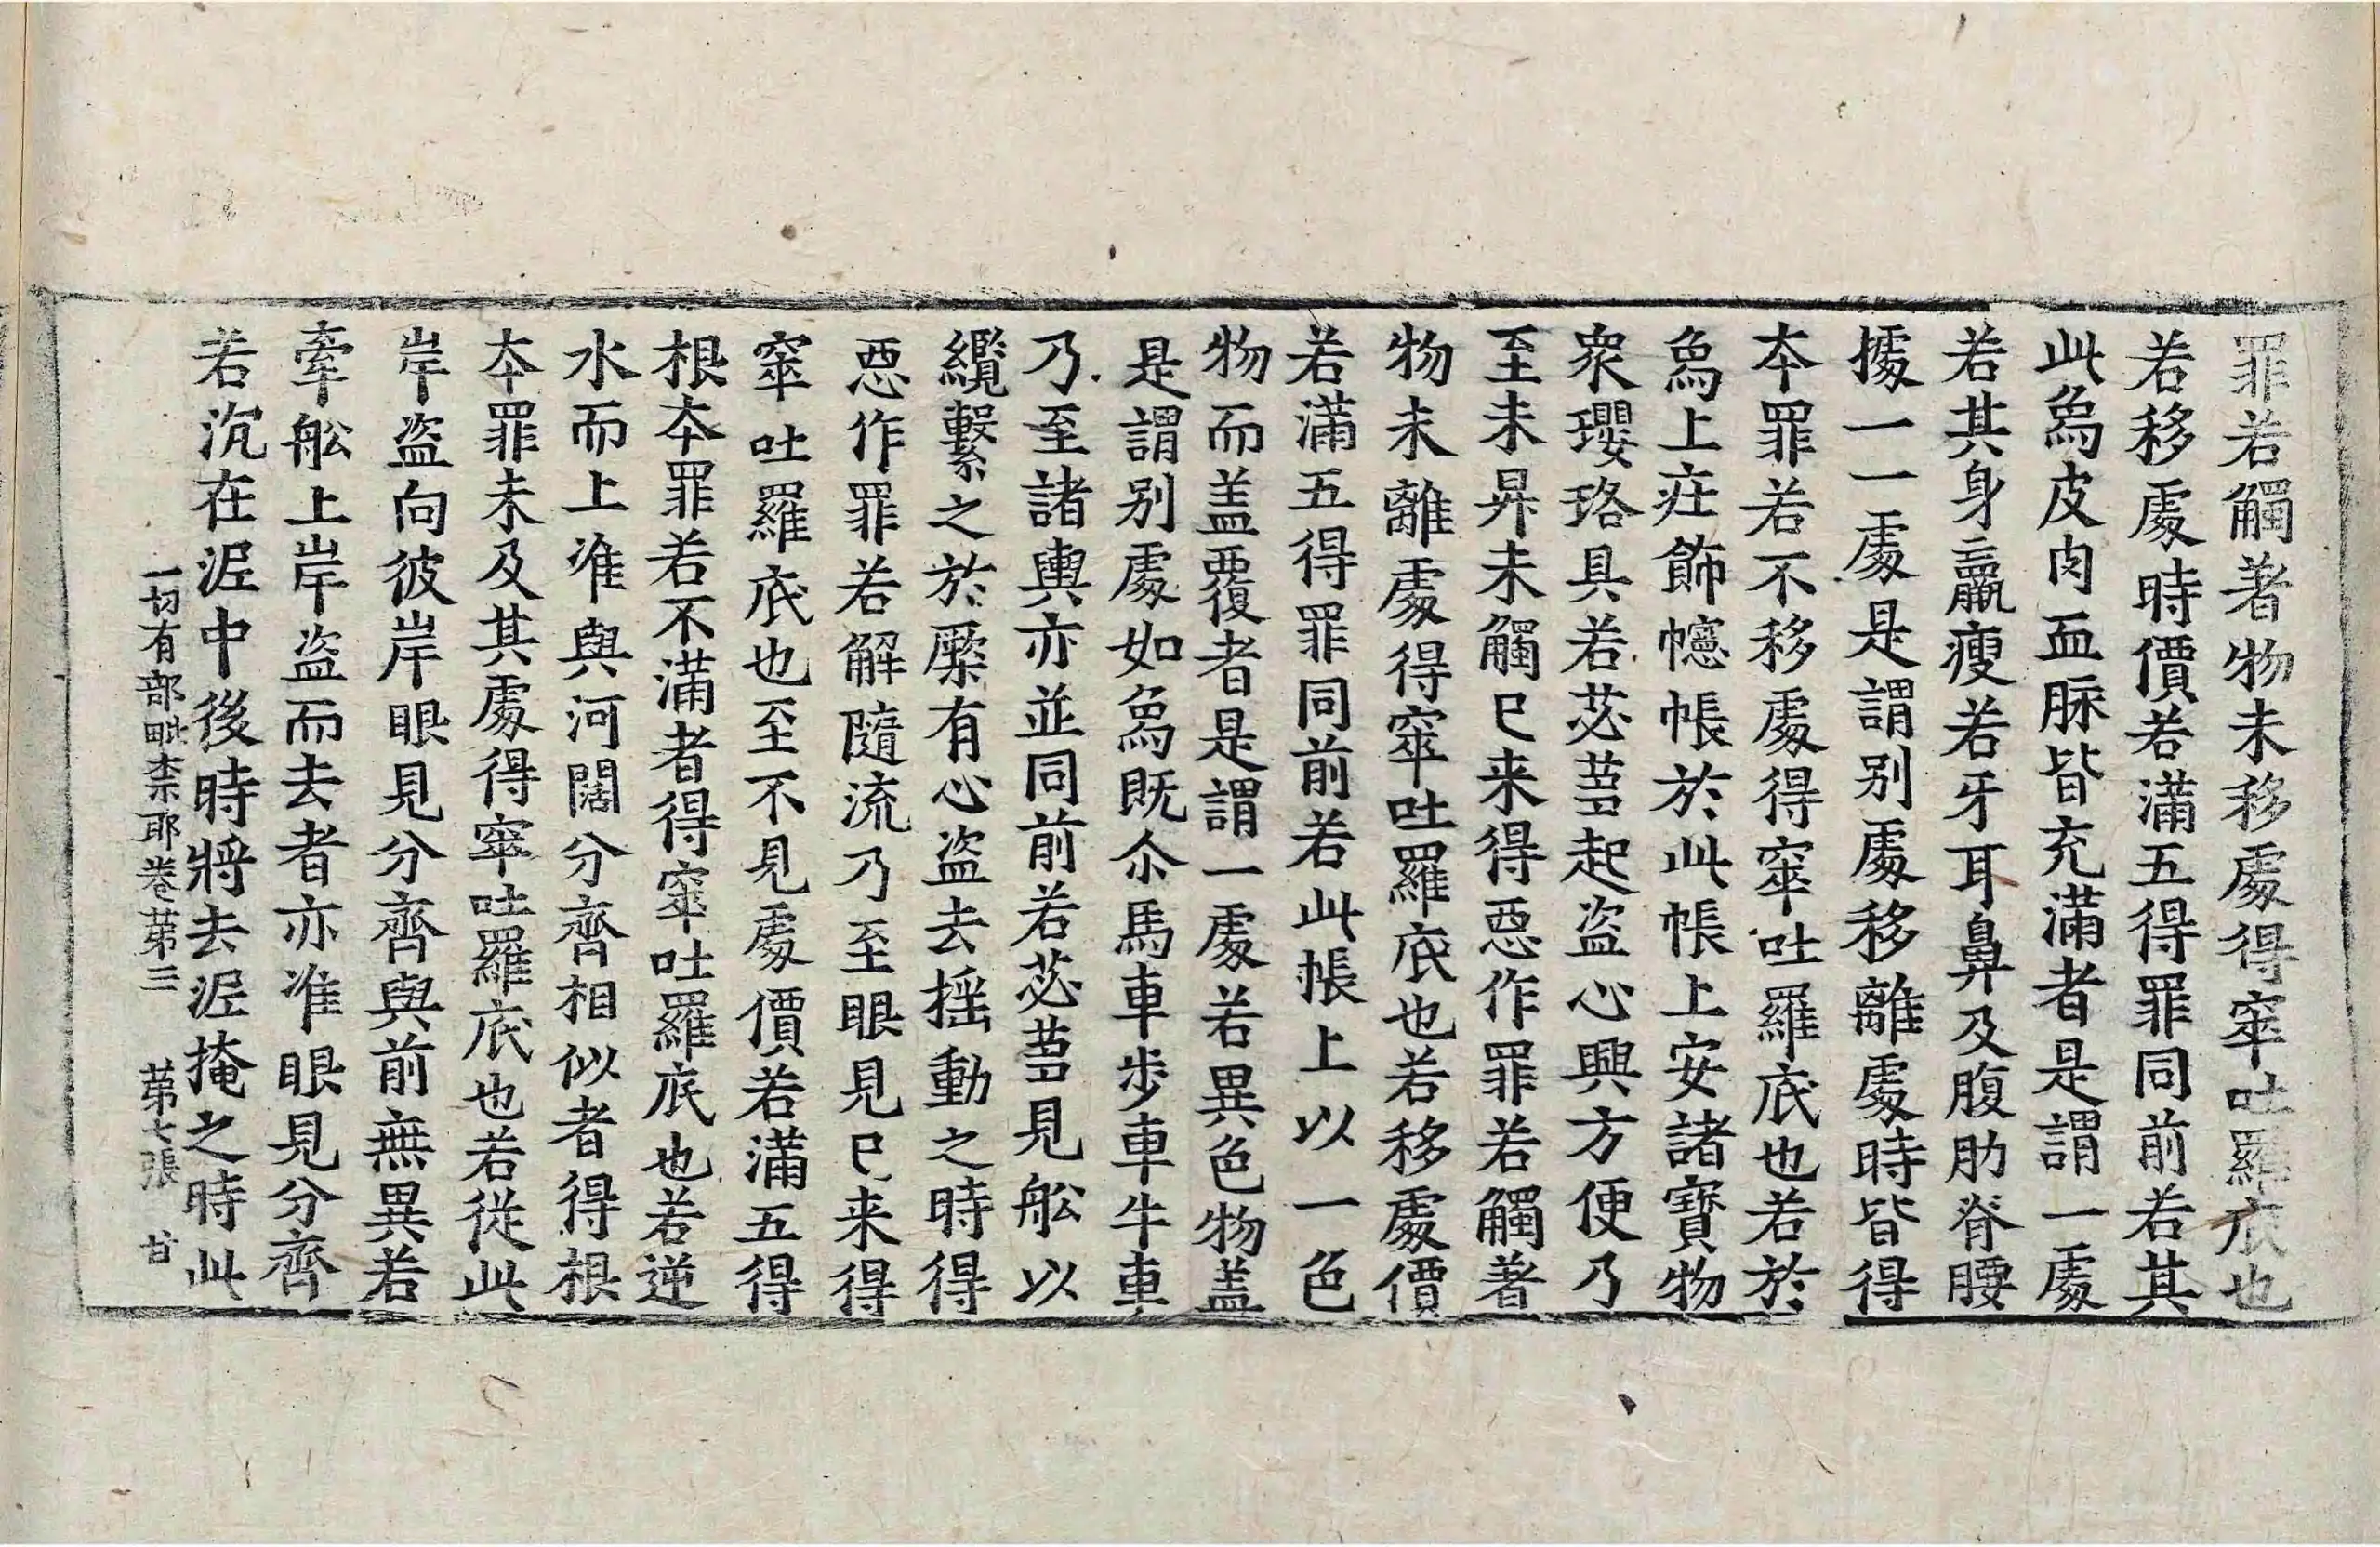 罪若觸著物未移處得窣吐羅底也
若移處時價若滿五得罪同前若其
此象皮肉血脉皆充滿者是謂一處
若其身羸瘦若牙耳鼻及腹肋脊腰
據一一處是謂别處移離處時皆得
本罪若不移處得窣吐羅底也若於
象上莊飾幰帳於此帳上安諸寶物
衆瓔珞具若苾蒭起盗心興方便乃
至未昇未觸已来得惡作罪若觸著
物未離處得窣吐羅底也若移處價
若滿五得罪同前若此帳上以一色
物而盖覆者是謂一處若異色物盖
是謂别處如象既尒馬車步車牛車
乃至諸輿亦並同前若苾蒭見舩以
纜繫之於橜有心盗去摇動之時得
惡作罪若解隨流乃至眼見已来得
窣吐羅底也至不見處價若滿五得
根本罪若不滿者得窣吐羅底也若逆
水而上准與河闊分齊相似者得根
本罪未及其處得窣吐羅底也若從此
岸盗向彼岸眼見分齊與前無異若
牽舩上岸盗而去者亦准眼見分齊
若沉在泥中後時將去泥掩之時此
一切有部毗柰耶卷第三　第七張　甘